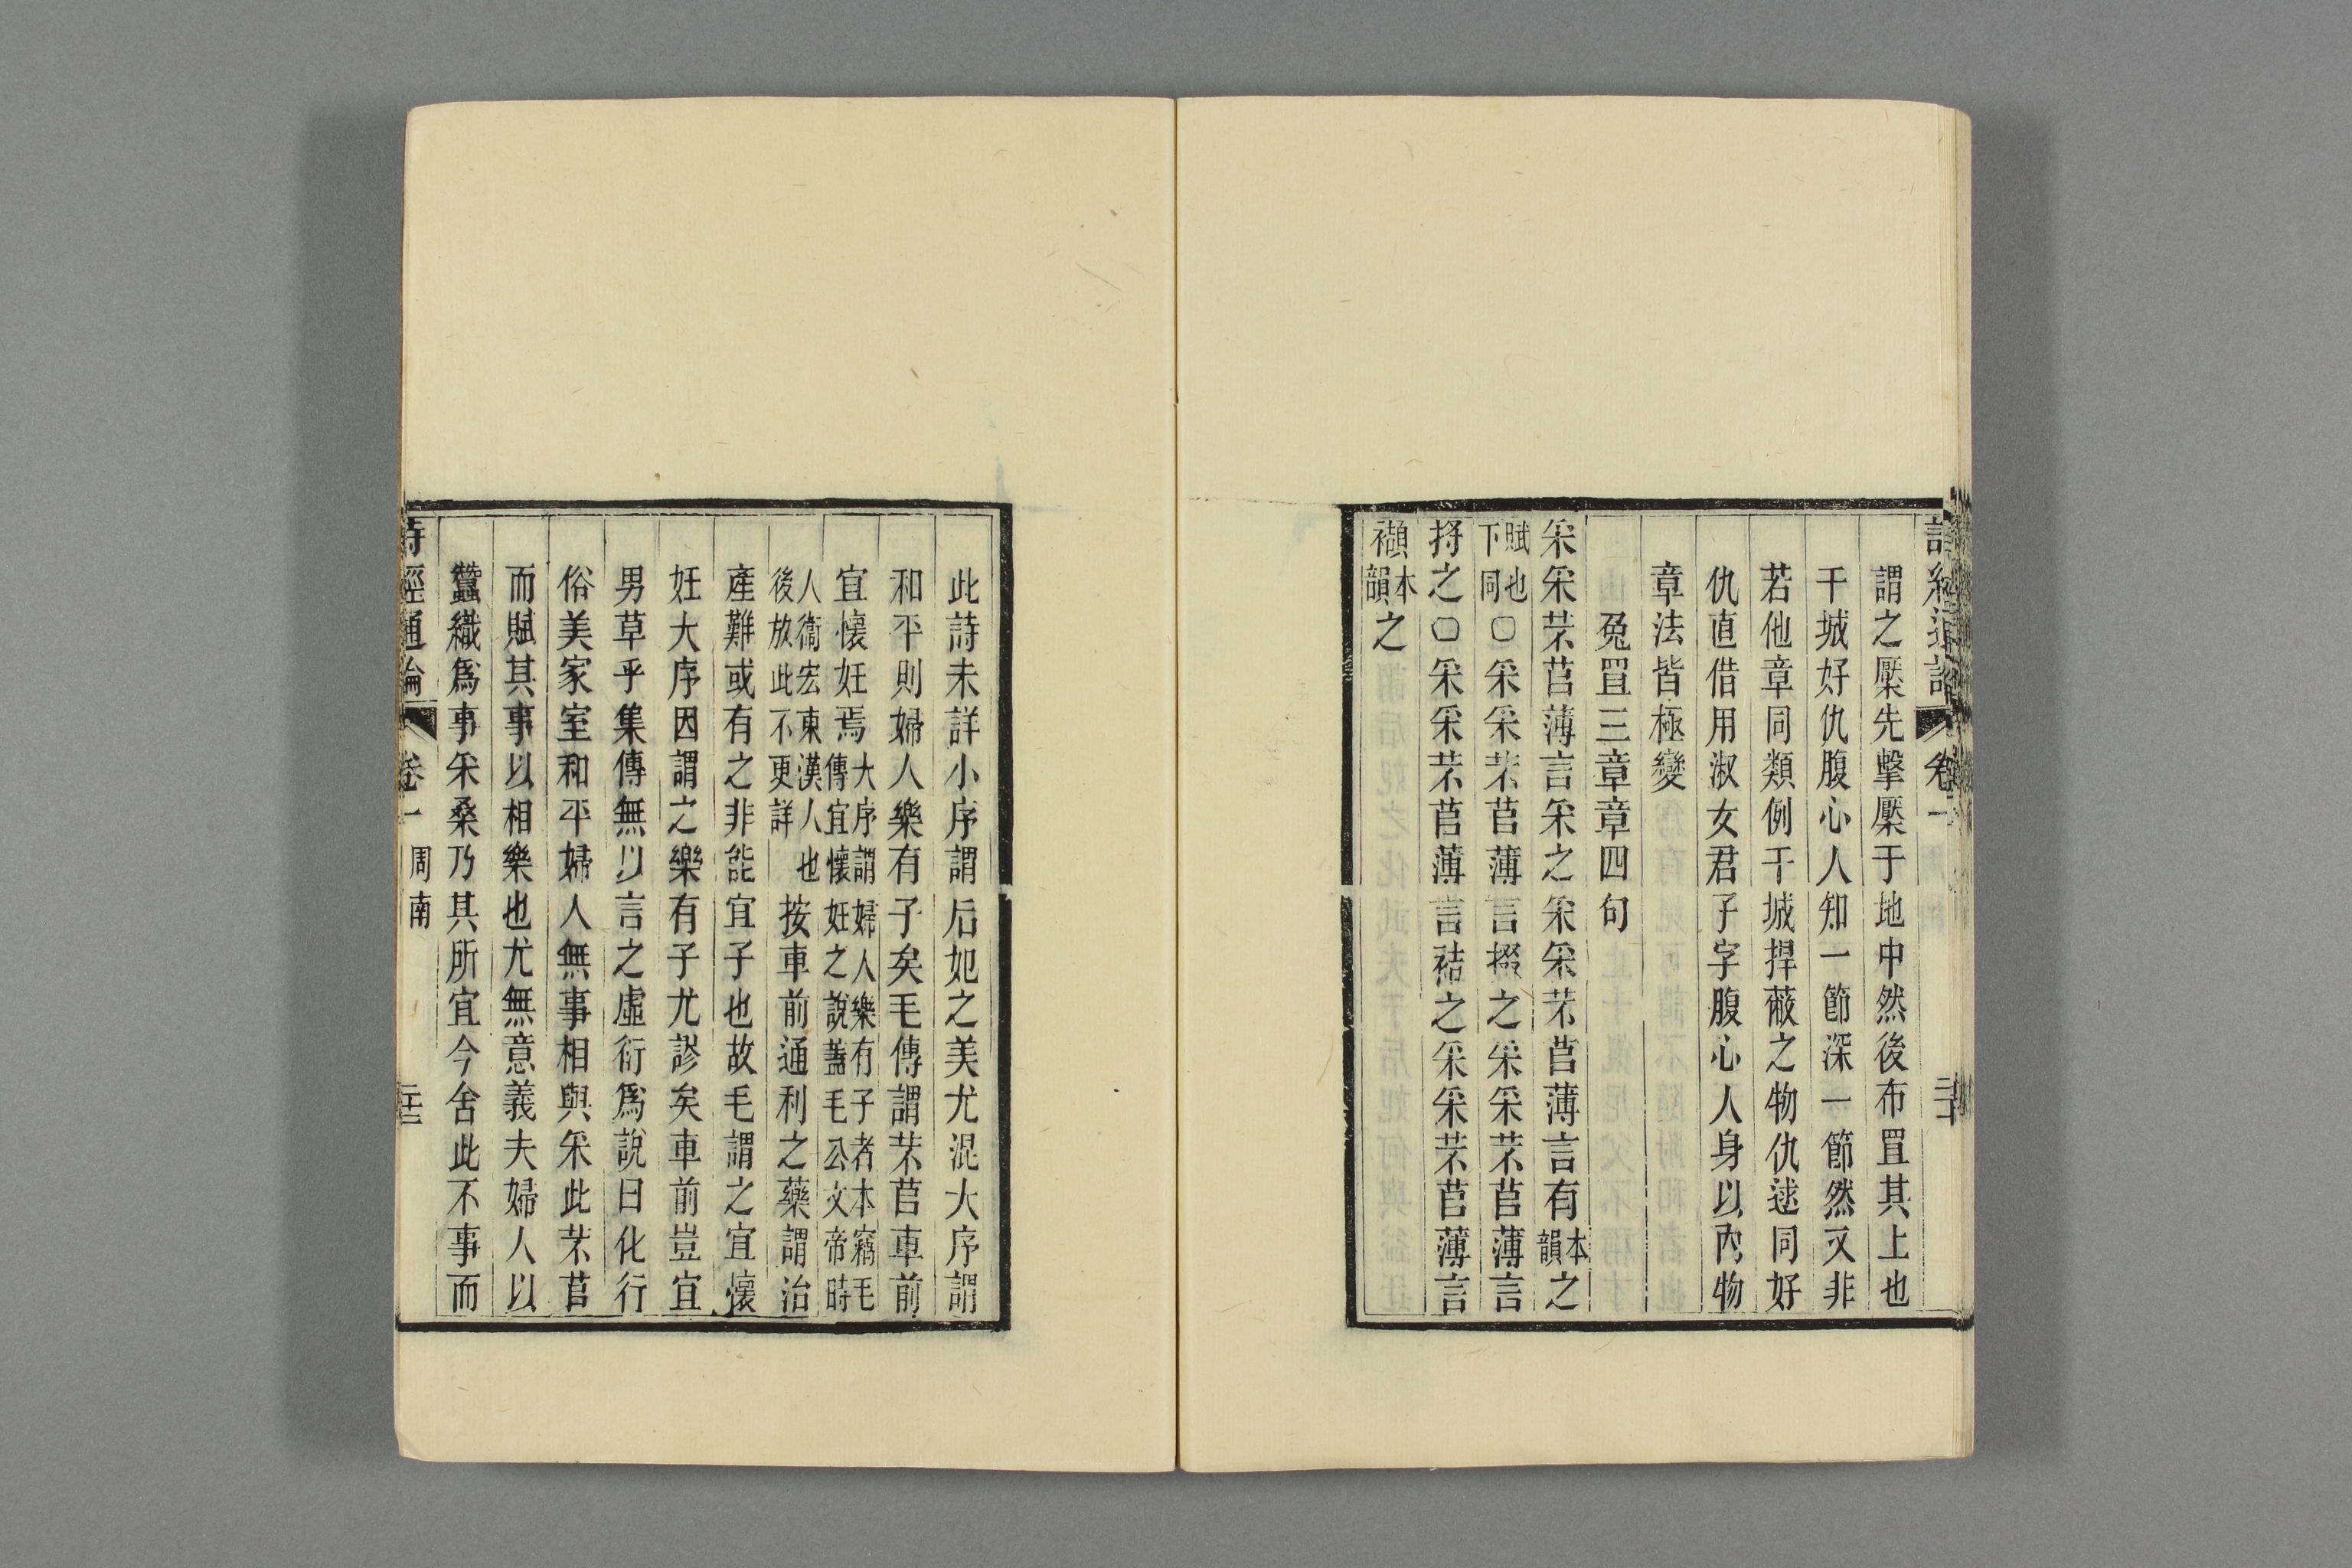 謂之橜先擊橜于地中然後布罝其上也
干城好仇腹心人知一節深一節然又非
若他章同類例干城捍蔽之物仇逑同好
仇直借用淑女君子字腹心人身以內物
章法皆極變
兔罝三章章四句
采采芣苢薄言采之采采芣苢薄言有本韻之
賦也下同〇采采芣苢薄言掇之采采芣苢薄言
捋之〇采采芣苢薄言袺之采采芣苢薄言
襭本韻之
此詩未詳小序謂后妃之美尤混大序謂
和平則婦人樂有子矣毛傳謂芣苢車前
宜懷妊焉大序謂婦人樂有子者本竊毛傳宜懷妊之說蓋毛公文帝時
人衛宏東漢人也後放此不更詳按車前通利之藥謂治
產難或有之非能宜子也故毛謂之宜懷
妊大序因謂之樂有子尤謬矣車前豈宜
男草乎集傳無以言之虛衍爲說曰化行
俗美家室和平婦人無事相與采此芣苢
而賦其事以相樂也尤無意義夫婦人以
蠶織爲事采桑乃其所宜今舍此不事而
詩經通論 卷一 周南